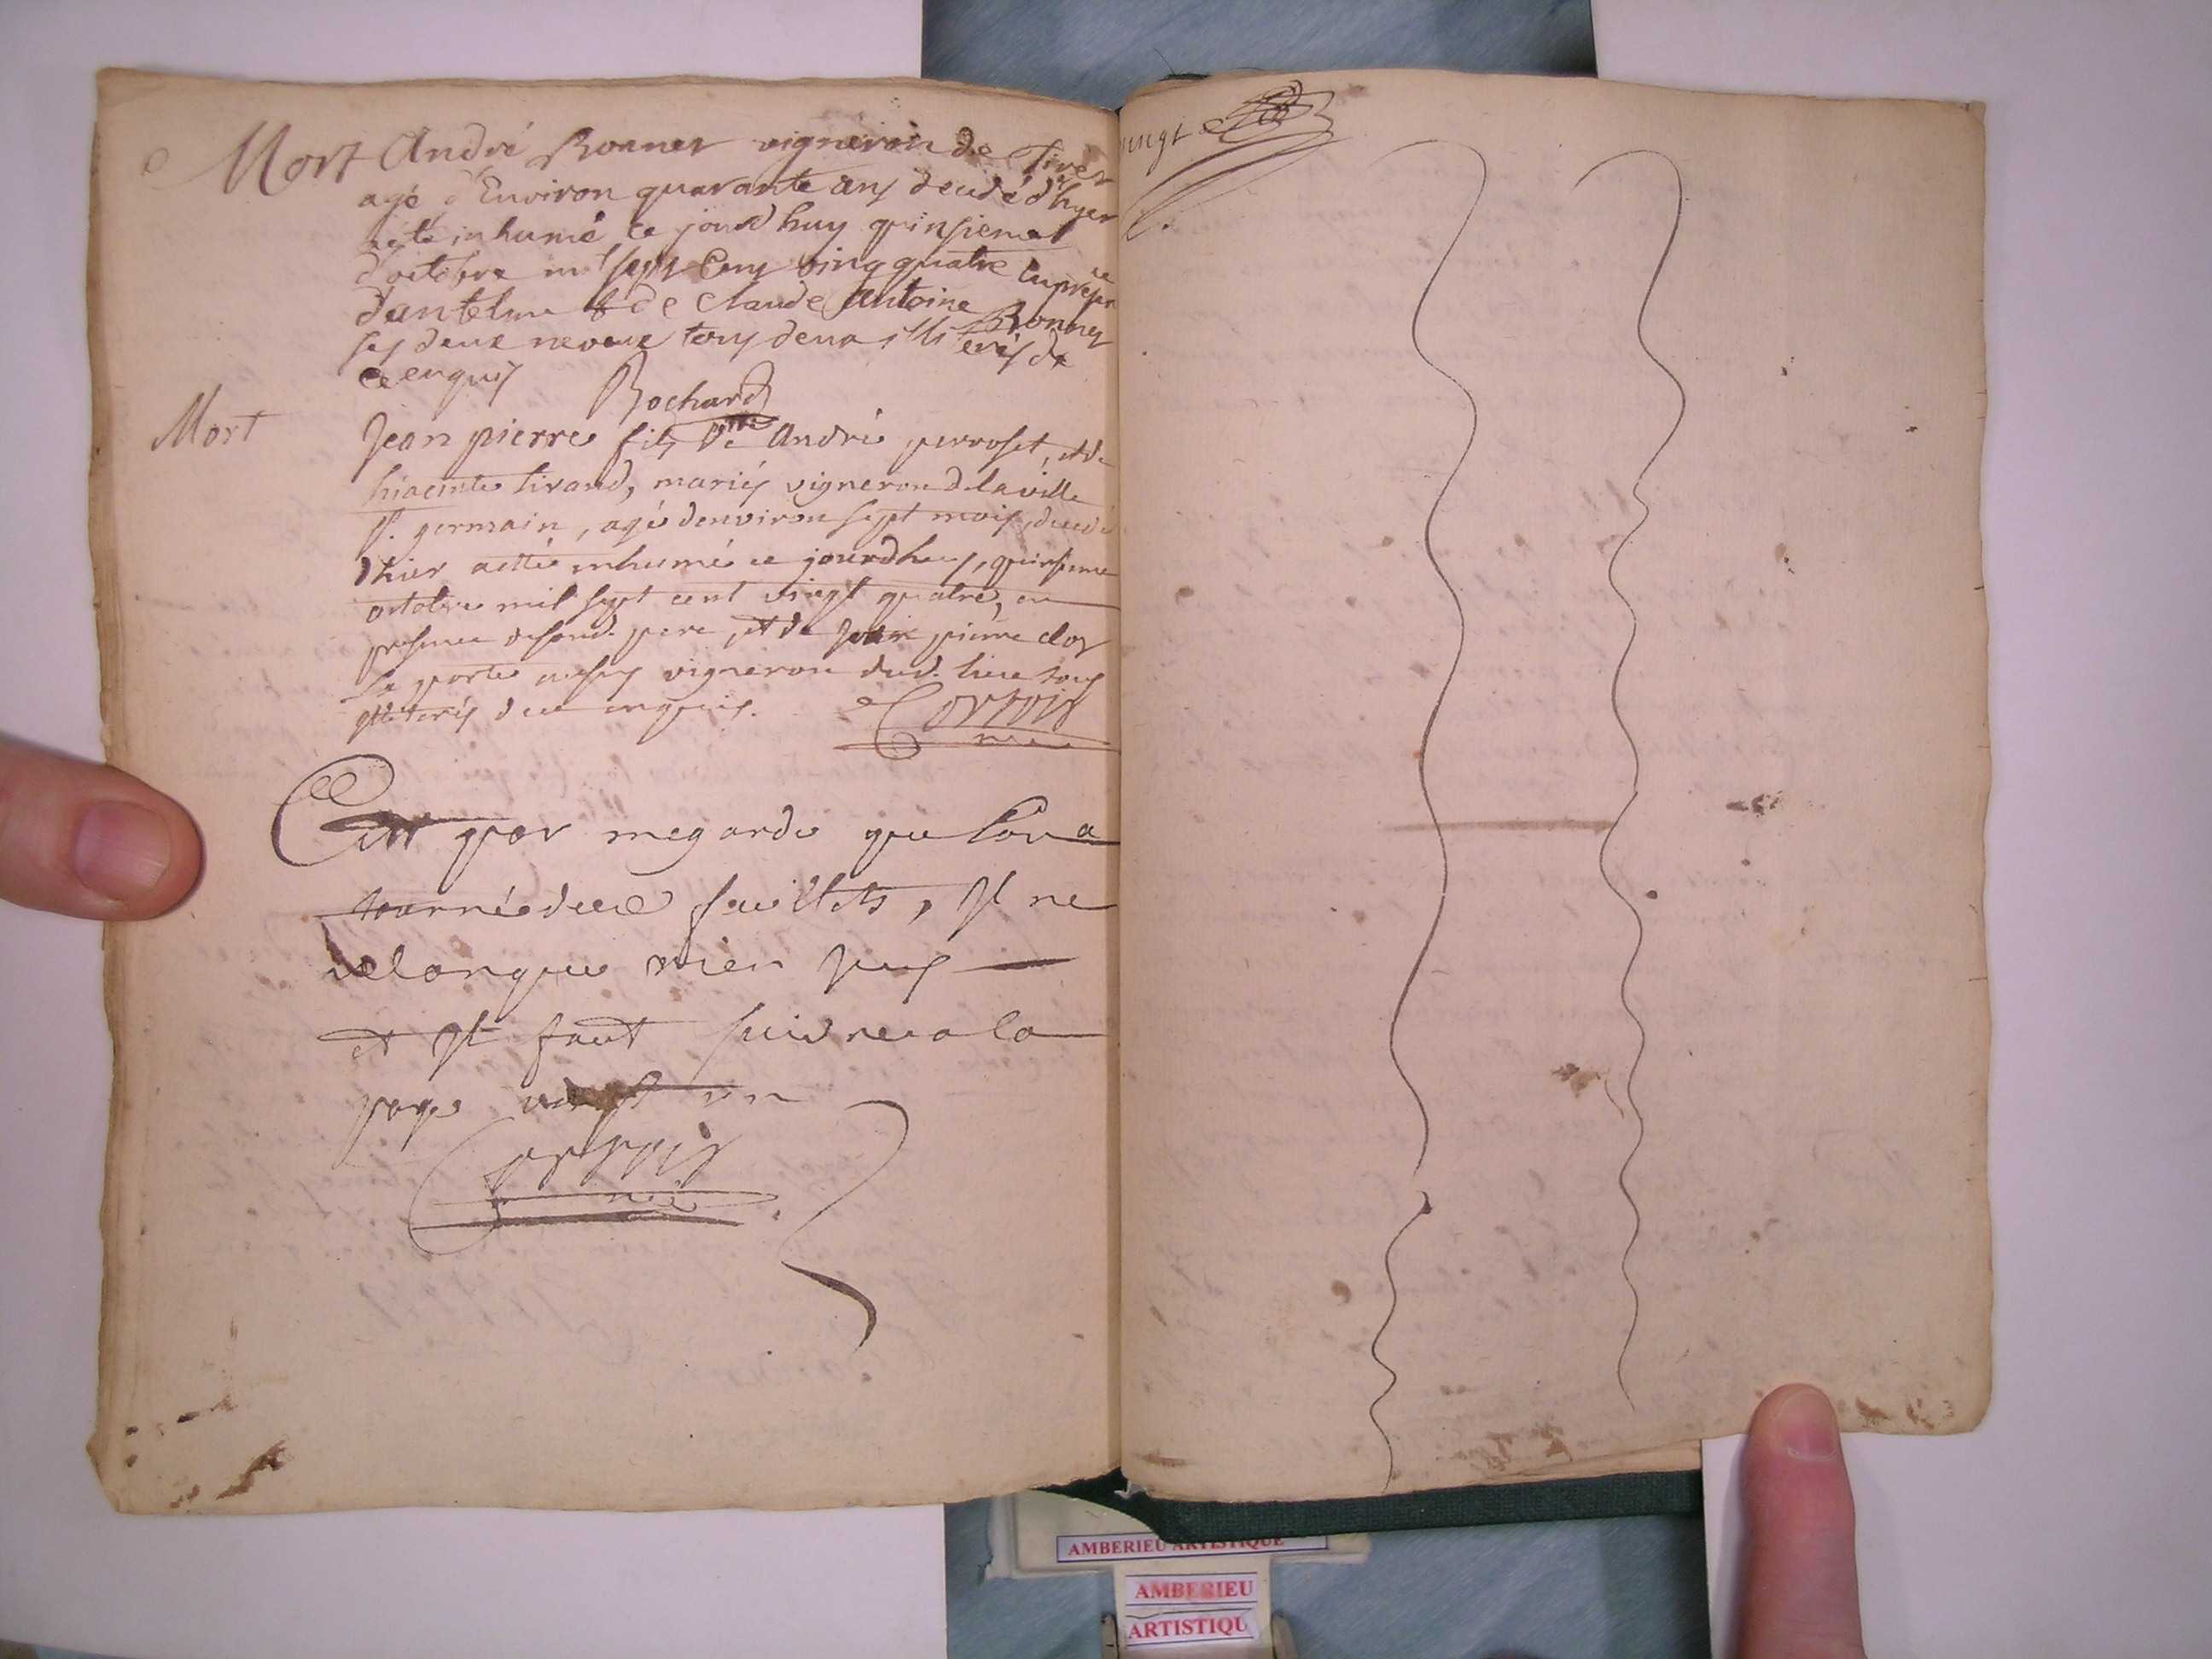 Mort André Bonnet vigneron de Tiret
agé d'Environ quarante ans decedé d'hyer
aeté inhumé ce jourd'huy quinsieme
d'octobre mil sept Cens ving quatre en presence
d'antelme & de Claude Antoine Bonnet
ses deux neveux tous deux illiterés de
ce enquis
Rochard
Mort Jean pierre fils de andré perroset, et de
hiacinte tirand, mariés vigneron de la ville
st. germain, agé denviron sept mois, decedé
dhier aetté inhumé ce jourdhuy, quinsieme
octobre mil sept cent vingt quatre, en
presence desond. pere, et de Jean pierre clos
la porte aussy vigneron dud. lieu tous
illiterés de ce enquis.
Cest par megarde que lon a
tourné deux feuillets, Il ne
manque rien
et Il faut suivre a la
page vingt un
vingt
AMBERIEU ARTISTIQUE
AMBERIEU
ARTISTIQU